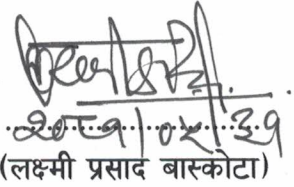 २०८१।०४।३१
(लक्ष्मी प्रसाद बास्कोटा)